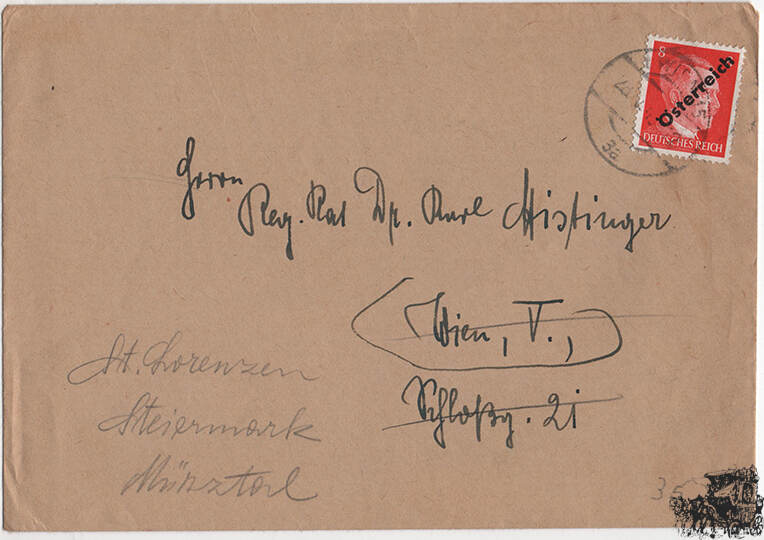 8
Österreich
DEUTSCHES REICH
3a
Herrn
Reg. Rat Dr. Karl Mistinger
Wien, V.,
Schloßg. 21
St. Lorenzen
Steiermark
Mürztal
35